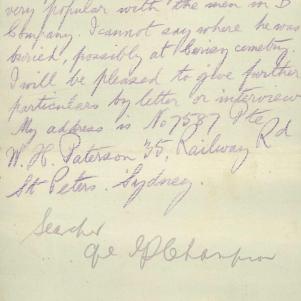 very popular with the men in D
Company. I cannot say where he was
buried, possibly at cemetry.
I will be pleased to give further
particulars by letter or interview
My address is No 7587 Pte
W. H. Paterson 35, Railway Rd
St Peters. Sydney.
Searcher
Champion